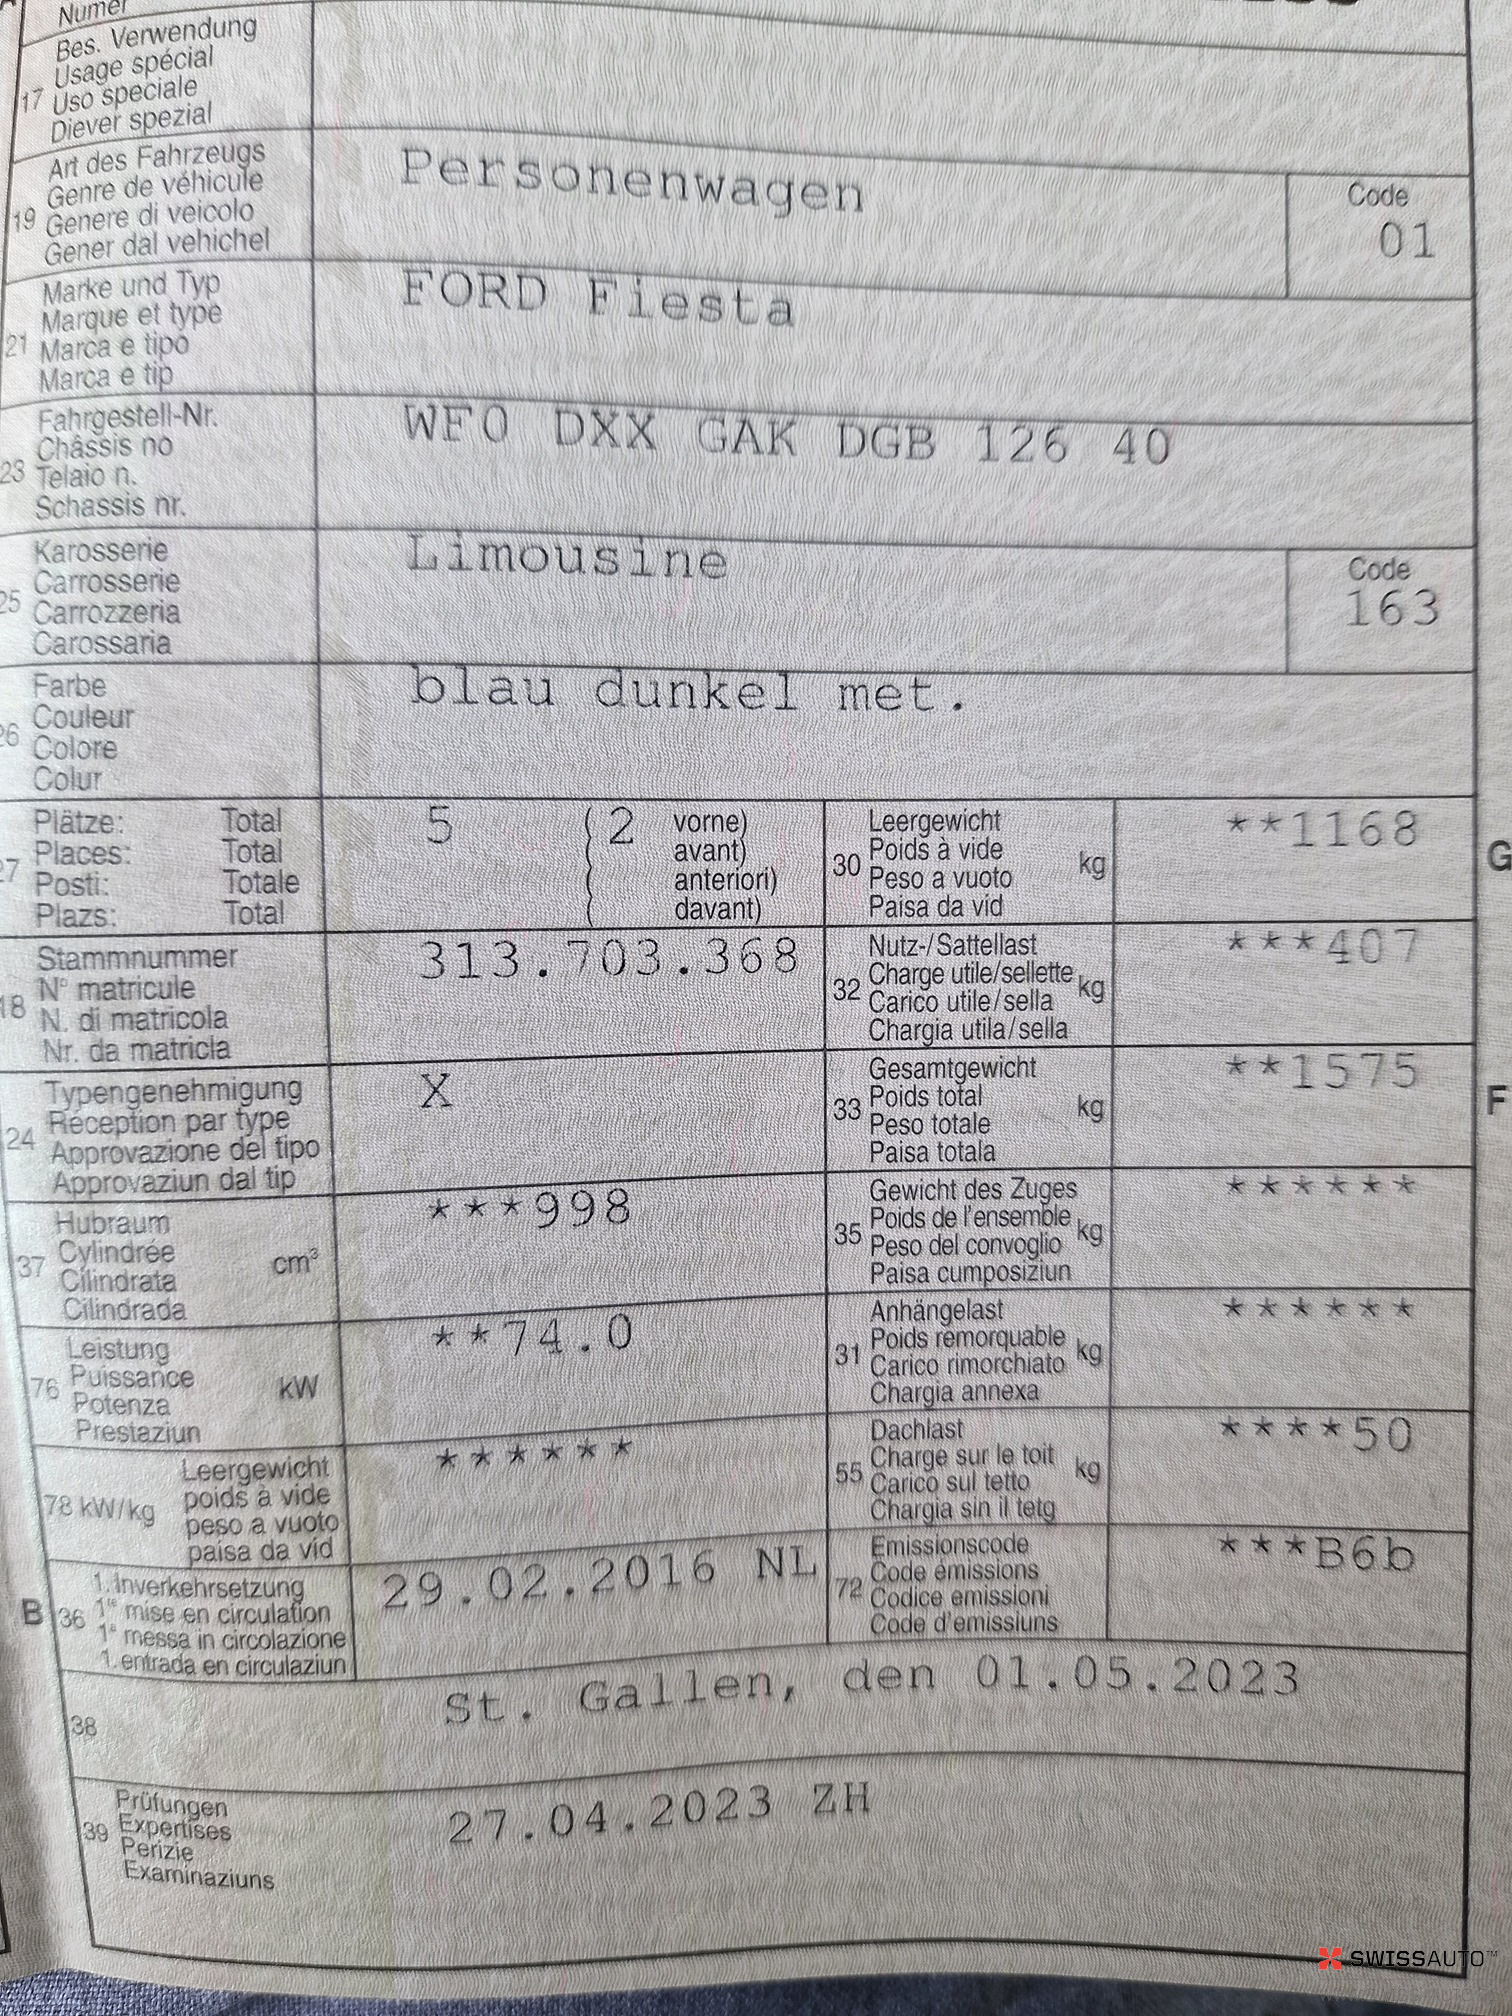 Numer
17
Bes. Verwendung
Usage spécial
Uso speciale
Diever spezial
19
Art des Fahrzeugs
Genre de véhicule
Genere di veicolo
Gener dal vehichel
Personenwagen
Code
01
21
Marke und Typ
Marque et type
Marca e tipo
Marca e tip
FORD Fiesta
23
Fahrgestell-Nr.
Châssis no
Telaio n.
Schassis nr.
WF0 DXX GAK DGB 126 40
25
Karosserie
Carrosserie
Carrozzeria
Carossaria
Limousine
Code
163
26
Farbe
Couleur
Colore
Colur
blau dunkel met.
27
Plätze: Total
Places: Total
Posti: Totale
Plazs: Total
5 ( 2 vorne)
( avant)
( anteriori)
( davant)
30
Leergewicht
Poids à vide
Peso a vuoto
Paisa da vid
kg
**1168
G
18
Stammnummer
N° matricule
N. di matricola
Nr. da matricla
313.703.368
32
Nutz-/Sattellast
Charge utile/sellette
Carico utile/sella
Chargia utila/sella
kg
***407
24
Typengenehmigung
Réception par type
Approvazione del tipo
Approvaziun dal tip
X
33
Gesamtgewicht
Poids total
Peso totale
Paisa totala
kg
**1575
F
37
Hubraum
Cylindrée
Cilindrata
Cilindrada
cm³
***998
35
Gewicht des Zuges
Poids de l'ensemble
Peso del convoglio
Paisa cumposiziun
kg
******
76
Leistung
Puissance
Potenza
Prestaziun
kW
**74.0
31
Anhängelast
Poids remorquable
Carico rimorchiato
Chargia annexa
kg
******
78 kW/kg
Leergewicht
poids à vide
peso a vuoto
paisa da vid
******
55
Dachlast
Charge sur le toit
Carico sul tetto
Chargia sin il tetg
kg
****50
B
36
1. Inverkehrsetzung
1re mise en circulation
1a messa in circolazione
1. entrada en circulaziun
29.02.2016 NL
72
Emissionscode
Code émissions
Codice emissioni
Code d'emissiuns
***B6b
38
St. Gallen, den 01.05.2023
39
Prüfungen
Expertises
Perizie
Examinaziuns
27.04.2023 ZH
SWISSAUTO™